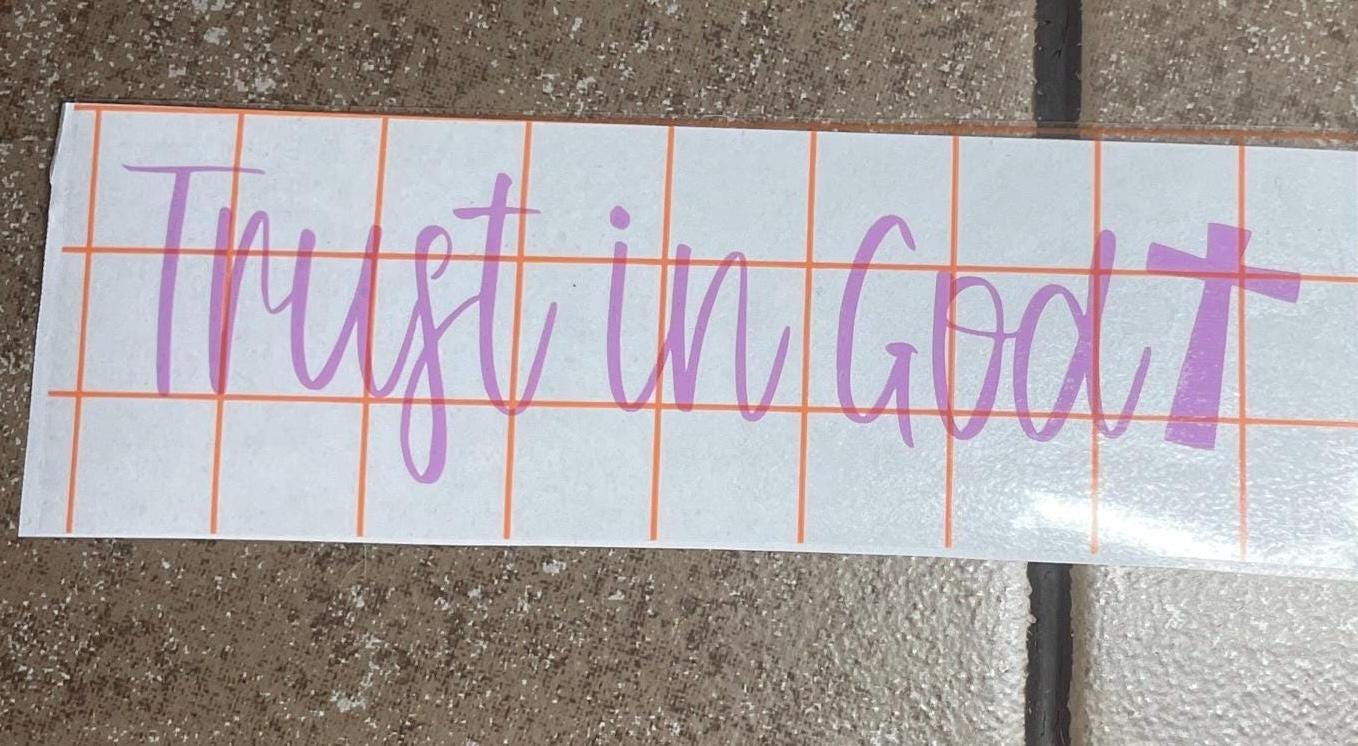 Trust in God